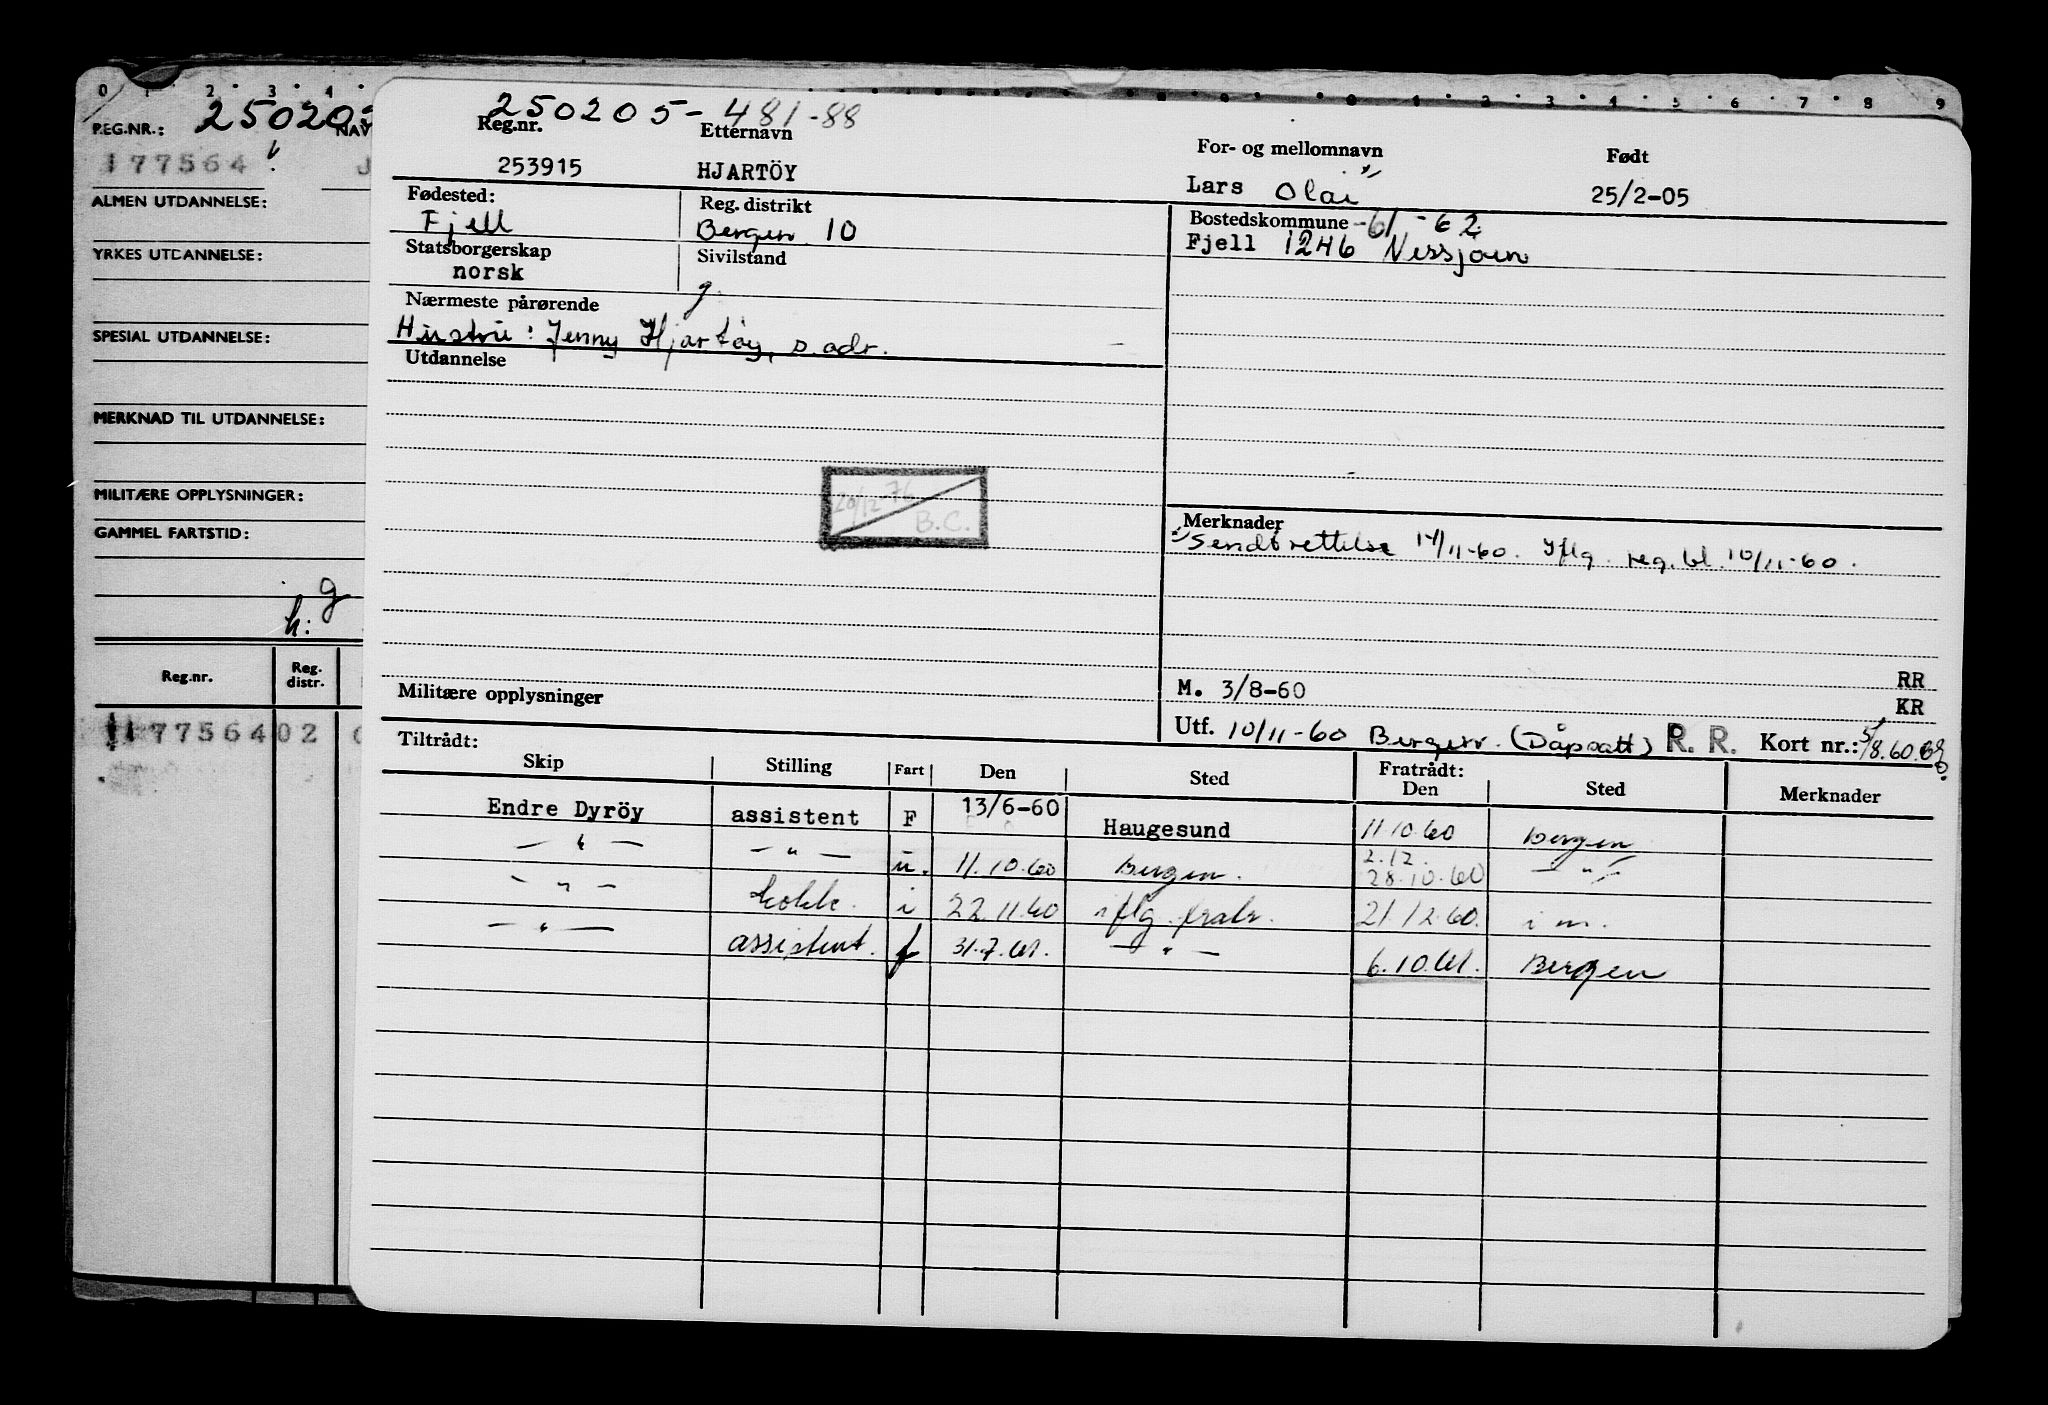 0 1 2 3 4
1 2 3 4 5 6 7 8 9
REG.NR.: 250205
NAV
177564 J
ALMEN UTDANNELSE:
YRKES UTDANNELSE:
SPESIAL UTDANNELSE:
MERKNAD TIL UTDANNELSE:
MILITÆRE OPPLYSNINGER:
GAMMEL FARTSTID:
g
h:
Reg.nr. Reg. distr.
17756402
250205-481-88
Reg.nr. Etternavn For- og mellomnavn Født
253915 HJARTÖY Lars Olai 25/2-05
Fødested: Reg. distrikt Bostedskommune -61-62
Fjell Bergen 10 Fjell 1246 Nessjøen
Statsborgerskap Sivilstand
norsk g
Nærmeste pårørende
Hustru: Jenny Hjartøy, s. adr.
Utdannelse
20/12-76
B.C.
Merknader
Sendt rettelse 14/11-60. Iflg. reg.bl. 10/11-60.
RR
Militære opplysninger M. 3/8-60 KR
Utf. 10/11-60 Bergen. (Dåpsatt) R. R. Kort nr.: 5/8.60.
Tiltrådt: Fratrådt:
Skip Stilling Fart Den Sted Den Sted Merknader
Endre Dyröy assistent F 13/6-60 Haugesund 11.10.60 Bergen
— " — — " — u. 11.10.60 Bergen. 2.12. 28.10.60 — " —
— " — kokk. i 22.11.60 iflg. fratr. 21.12.60. i m.
— " — assistent. f 31.7.61. — " — 6.10.61. Bergen